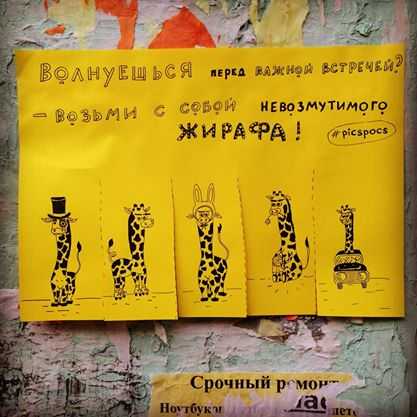 Волнуешься перед важной встречей?
— возьми с собой невозмутимого
жирафа!
#picspocs
Срочный ремонт
Ноутбуки